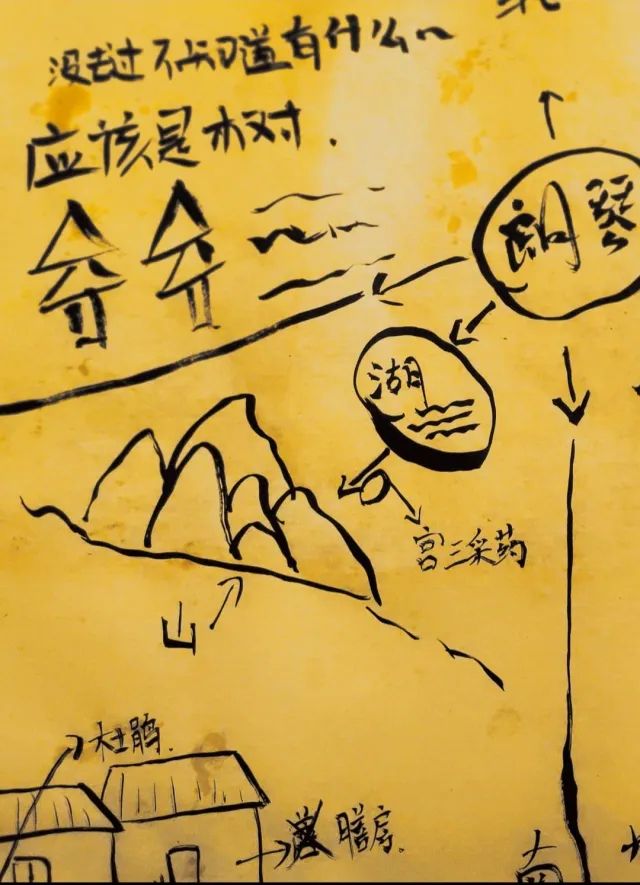 没去过 不知道有什么~
应该是树.
朗琴
湖
宫三采药
山
杜鹃.
膳房.